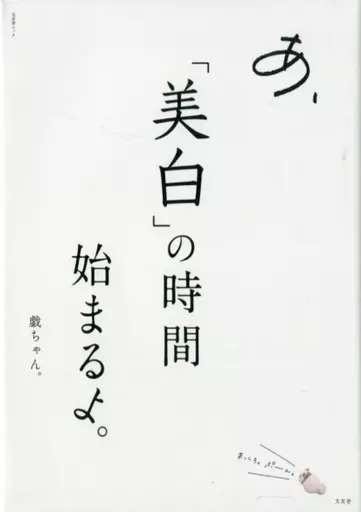 あ、
「美白」の時間
始まるよ。
戯ちゃん。
文友舎